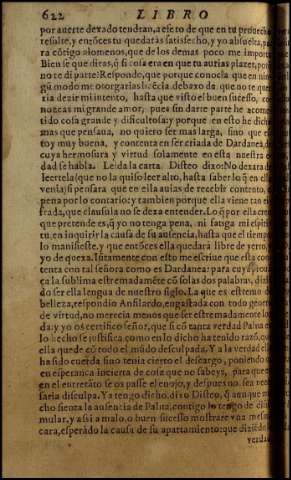 622 LIBRO
por auerte dexado tendran, a efeto de que en tu prouecho
resulte, y entõces tu quedarás satisfecho, y yo absuelta, pa-
ra cõtigo alomenos, que de los demas poco me importa
Bien se que diras, q̃ si cosa era en que tu aurias plazer, porq̃
no te di parte? Respondo, que porque conocia que en nin-
gũ modo me otorgarias licẽcia. debaxo da que no te que-
ria dezir mi intento, hasta que visto el buen sucesso, co-
nozcas mi grande amor, pues sin darte parte he acome-
tido cosa grande y dificultosa: y porque en esto he dicho
mas que pensaua, no quiero ser mas larga, sino que es-
toy muy buena, y contenta en ser criada de Dardanea, de
cuya hermosura y virtud solamente en esta nuestra e
dad se habla. Leida la carta. Disteo dixo: No dexara de
leertela (que no la quiso leer alto, hasta saber lo q̃ en ella
venia) si pensara que en ella auias de recebir contento, o
pena por lo contario: y tambien porque ella viene tan ci-
frada, que clausula no se dexa entender. Lo q̃ por ella creo
que pretende es, q̃ yo no tenga pena, ni fatiga mi espiri-
tu, en inquirir la causa de su ausencia, hasta que el tiempo
lo manifieste, y que entõces ella quedara libre de yerro,
yo de quexa. Iutamente con esto me escriue que esta con
tenta con tal señora como es Dardanea: para cuya proua
ça la sublima estremadamẽte cõ solas dos palabras, dizié
do ser ella lengua de nuestro siglo. La que es estrema de
belleza, respondio Anfilardo, engastada con todo genero
de virtud, no merecia menos que ser estremadamente loa
da: y yo os certifico señor, que si cõ tanta verdad Palna en
lo hecho se justifica como en lo dicho ha tenido razõ, que
ella quede cõ todo el mũdo desculpada. Y a la verdad ella
ha sido cuerda, sino tenia cierto el descargo, poniendo os
en esperança incierta de cosa que no sabeys, para que
en el entretãto se os passe el enojo, y despues no sea neces-
saria disculpa. Ya tengo dicho, dixo Disteo, q̃ aun que mu-
cho sienta la ausentia de Palna, contigo lo tengo de dissi-
mular, y assi a malo, o buen sucesso mostrare vna mesma
cara, esperãdo la causa de su apartamiento: que diziẽdo la
verdad